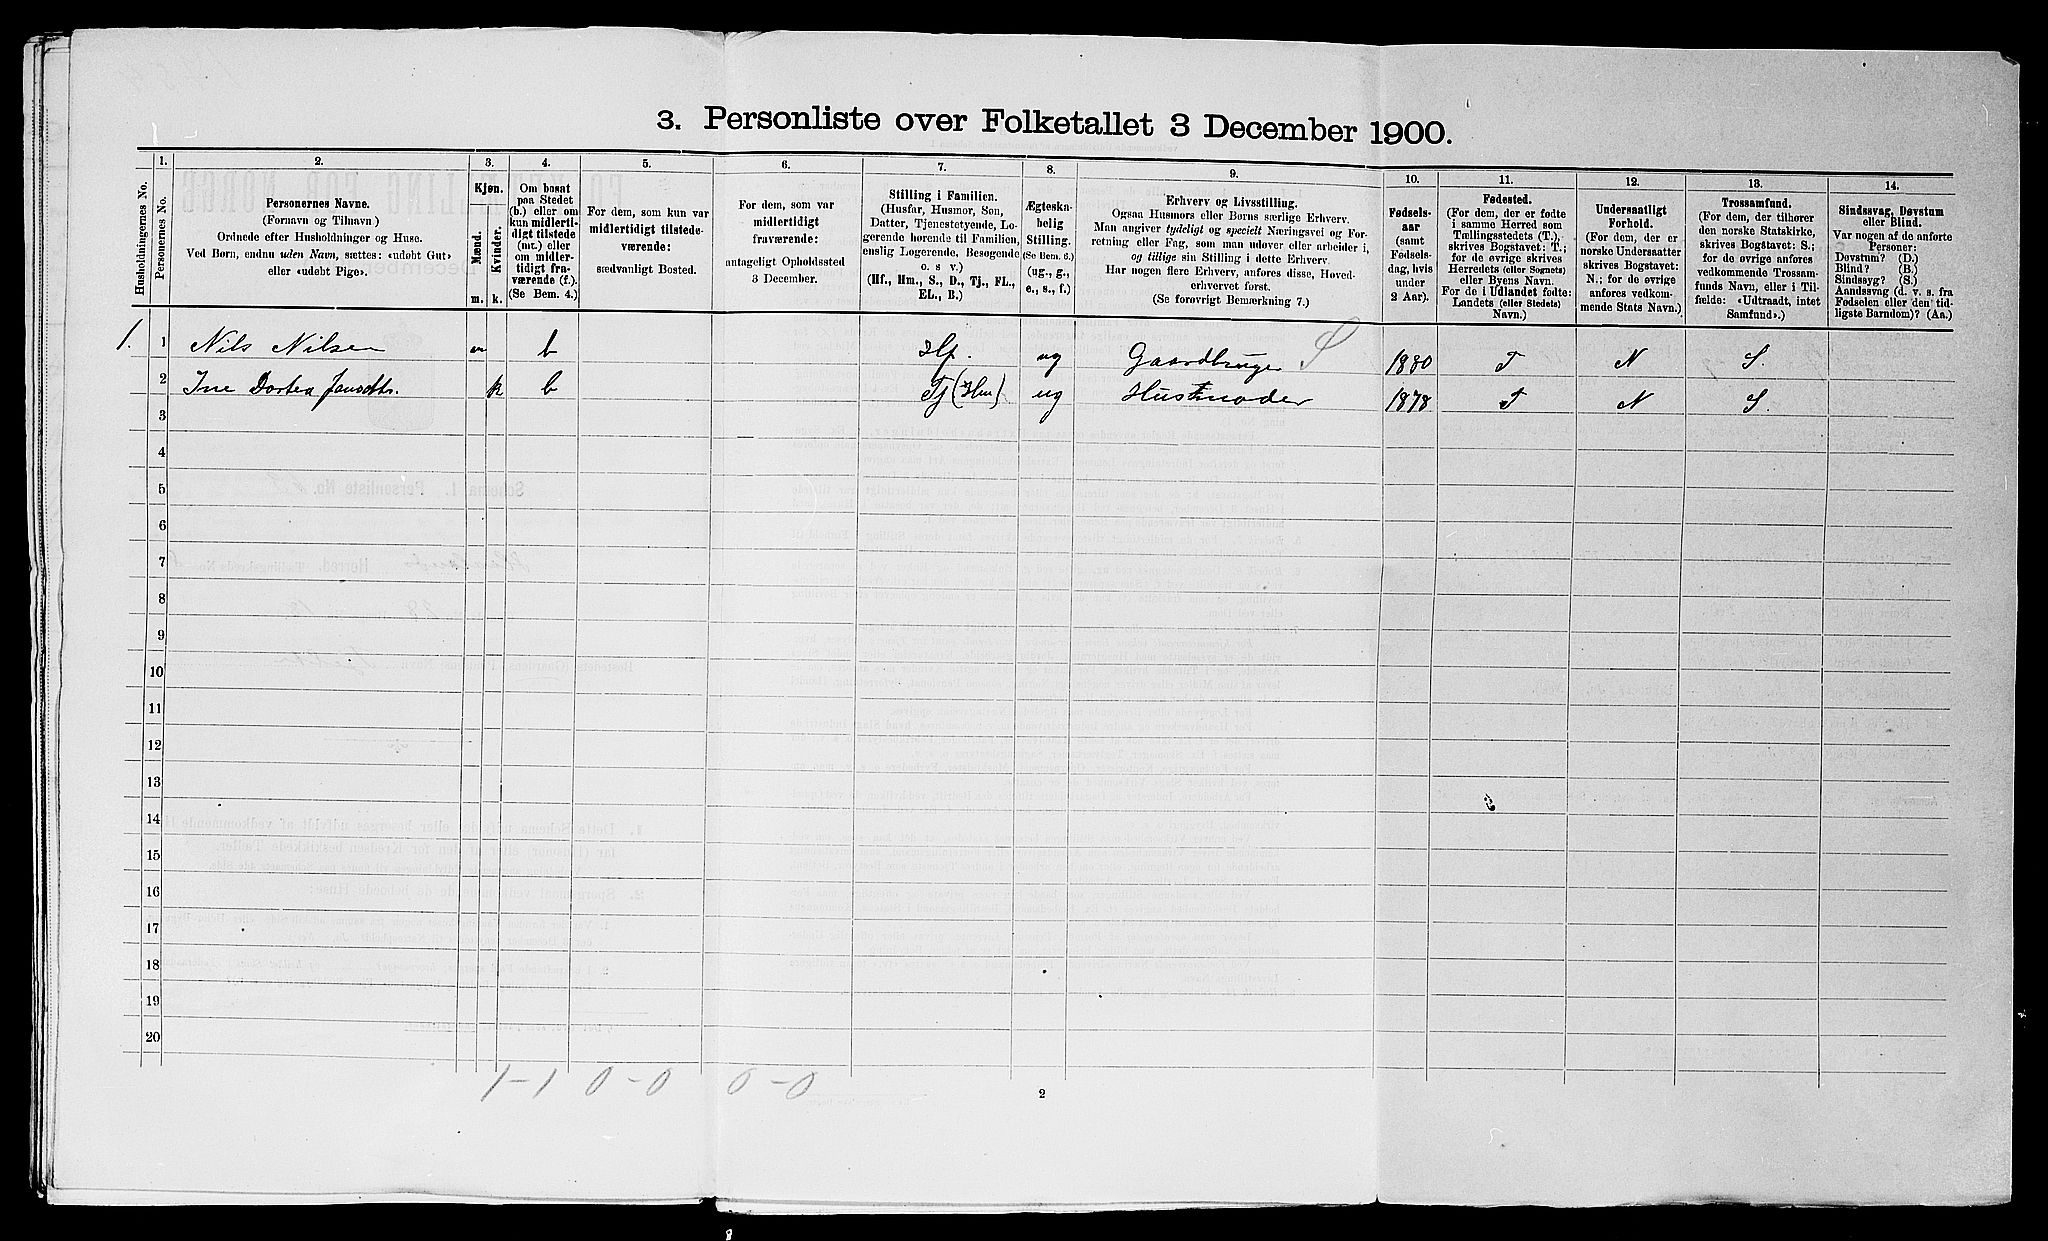 3. Personliste over Folketallet 3 December 1900.
Husholdningernes No.
1.
Personernes No.
2.
Personernes Navne.
(Fornavn og Tilnavn)
Ordnede efter Husholdninger og Huse.
Ved Børn, endnu uden Navn, sættes: «udøbt Gut»
eller «udøbt Pige».
3.
Kjøn.
Mænd.
Kvinder.
m. k.
4.
Om bosat
paa Stedet
(b.) eller om
kun midlerti-
digt tilstede
(mt.) eller
om midler-
tidigt fra-
værende (f.).
(Se Bem. 4.)
5.
For dem, som kun var
midlertidigt tilstede-
værende:
sædvanligt Bosted.
6.
For dem, som var
midlertidigt
fraværende:
antageligt Opholdssted
3 December.
7.
Stilling i Familien.
(Husfar, Husmor, Søn,
Datter, Tjenestetyende, Lo-
gerende hørende til Familien,
enslig Logerende, Besøgende
o. s v.)
(Hf., Hm., S., D., Tj., FL.,
EL., B.)
8.
Ægteska-
belig
Stilling.
(Se Bem. 6.)
(ug., g.,
e., s., f.)
9.
Erhverv og Livsstilling.
Ogsaa Husmors eller Børns særlige Erhverv.
Man angiver tydeligt og specielt Næringsvei og For-
retning eller Fag, som man udøver eller arbeider i,
og tillige sin Stilling i dette Erhverv.
Har nogen flere Erhverv, anføres disse, Hoved-
erhvervet først.
(Se forøvrigt Bemærkning 7.)
10.
Fødsels-
aar
(samt
Fødsels-
dag, hvis
under
2 Aar).
11.
Fødested.
(For dem, der er fødte
i samme Herred som
Tællingsstedets (T.),
skrives Bogstavet: T.;
for de øvrige skrives
Herredets (eller Sognets)
eller Byens Navn.
For de i Udlandet fødte:
Landets (eller Stedets)
Navn.)
12.
Undersaatligt
Forhold.
(For dem, der er
norske Undersaatter
skrives Bogstavet:
N.; for de øvrige
anføres vedkom-
mende Stats Navn.)
13.
Trossamfund.
(For dem, der tilhører
den norske Statskirke,
skrives Bogstavet: S.;
for de øvrige anføres
vedkommende Trossam-
funds Navn, eller i Til-
fælde: «Udtraadt, intet
Samfund».)
14.
Sindssvag, Døvstum
eller Blind.
Var nogen af de anførte
Personer:
Døvstum? (D.)
Blind? (B.)
Sindssyg? (S.)
Aandssvag (d. v. s. fra
Fødselen eller den tid-
ligste Barndom)? (Aa.)
1. 1 Nils Nilsen m b Hf. ug Gaardbruger S 1880 T N S.
2 Ine Dortea k b Tj (Hm) ug 1878 T N S.
3
4
5
6
7
8
9
10
11
12
13
14
15
16
17
18
19
20
1-1 0-0 0-0
2